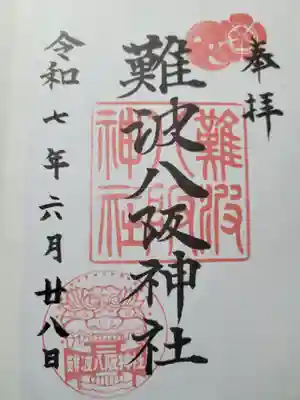 奉拝
難波八阪神社
難波
八阪
神社
令和七年六月廿八日
難波八阪神社